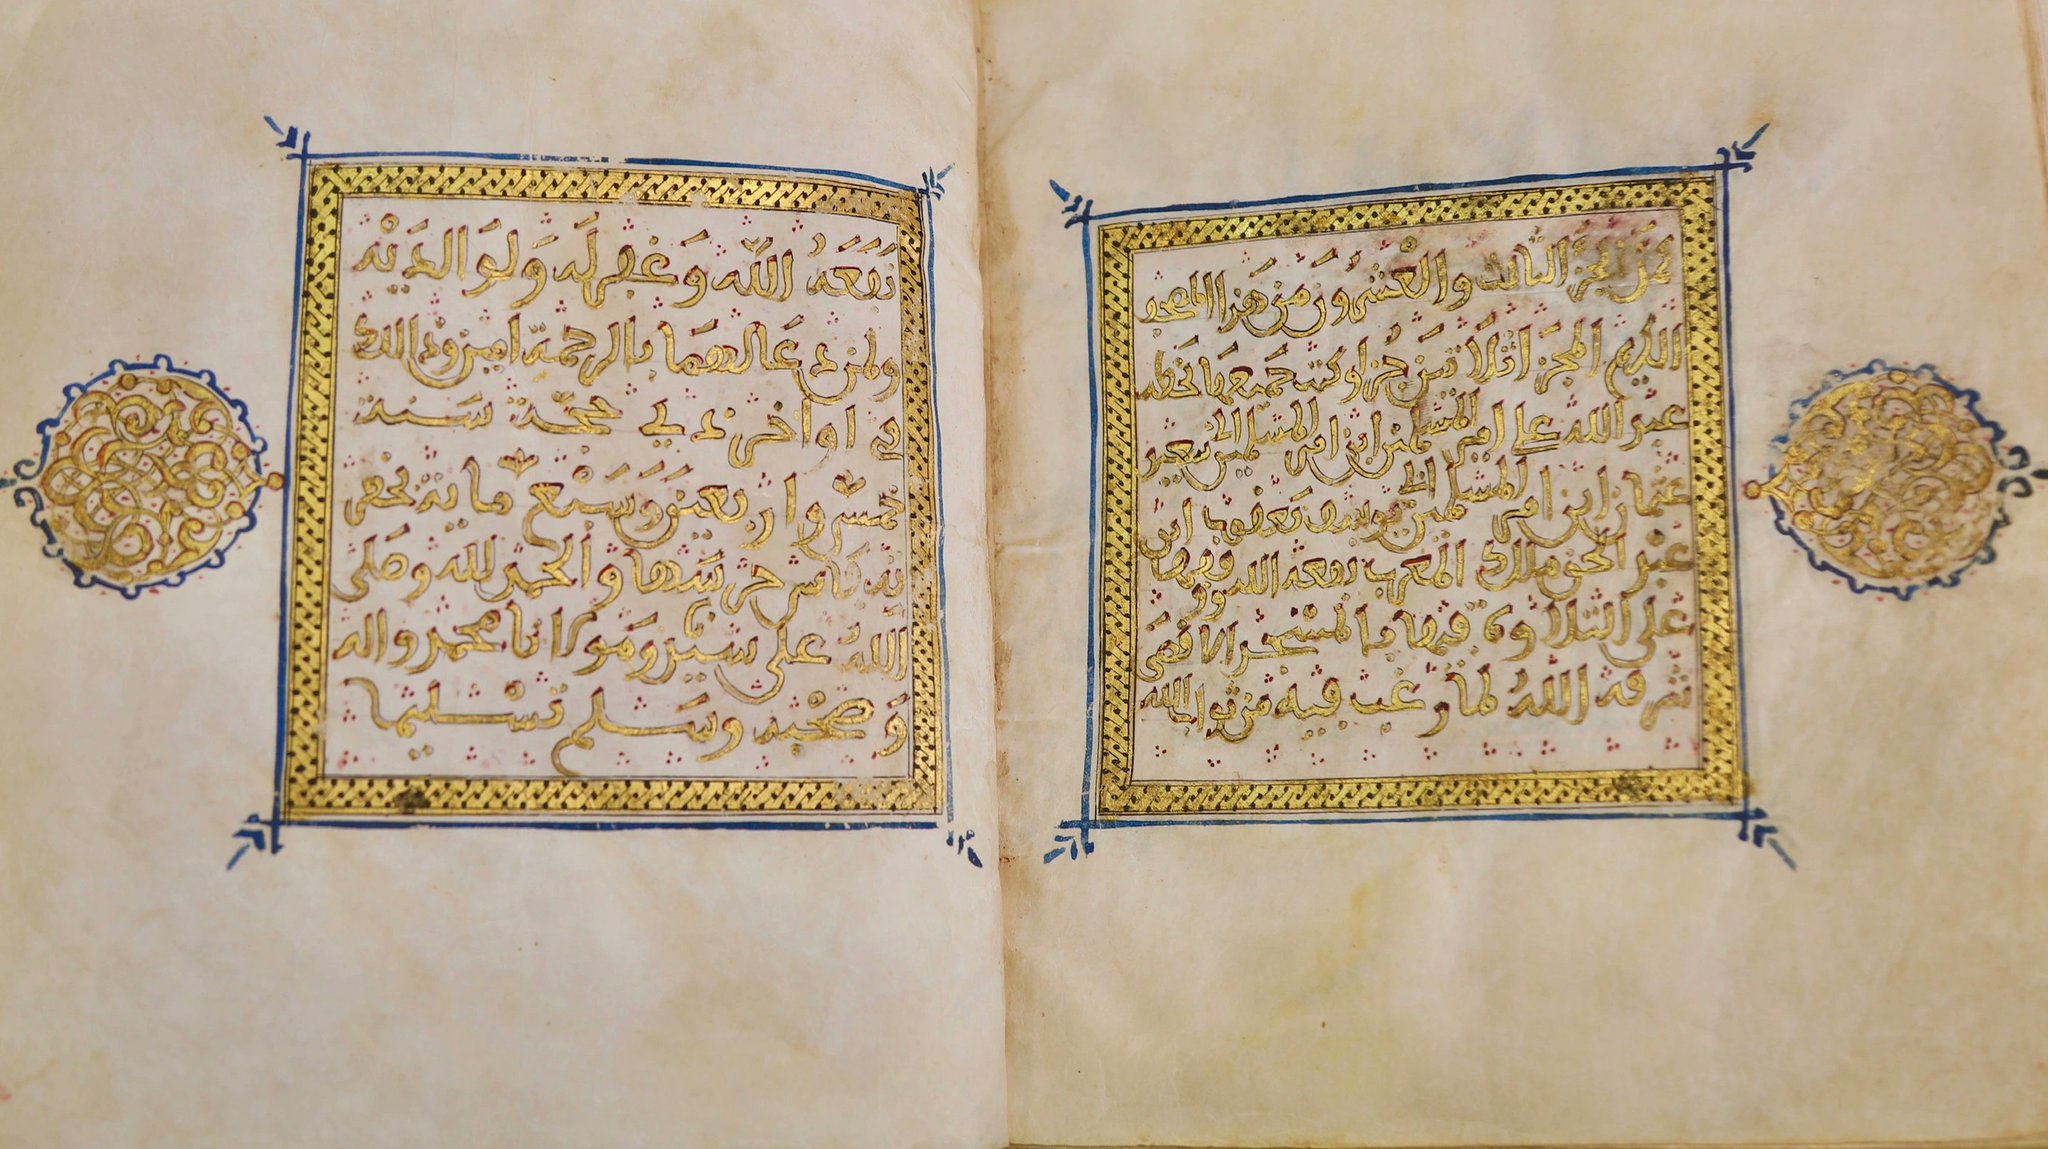 كمل الجزء الثالث والعشرون من هذا المصحف
الكريم المجزا ثلاثين جزءا وكتب جميعها بخطه
عبد الله علي امير المسلمين ابن امير المسلمين ابي سعيد
عثمان ابن امير المسلمين ابي يوسف يعقوب ابن
عبد الحق ملك المغرب نفعه الله ووقفها
على التلاوة فيها بالمسجد الاقصى
شرفه الله لما رغب فيه من ثواب الله
نَفَعَهُ الله وَغَفر لَه وَلِوَالديْه
ولمن دعا لهما بالرحمة امين وذالك
في اواخر ذي حجة سنة
خمس واربعين وسبْع ماية بحضر
ته فاس حرسها والحمد لله وصلى
الله على سيدنا ومولانا محمد واله
وَصحْبه وسلم تسْليما